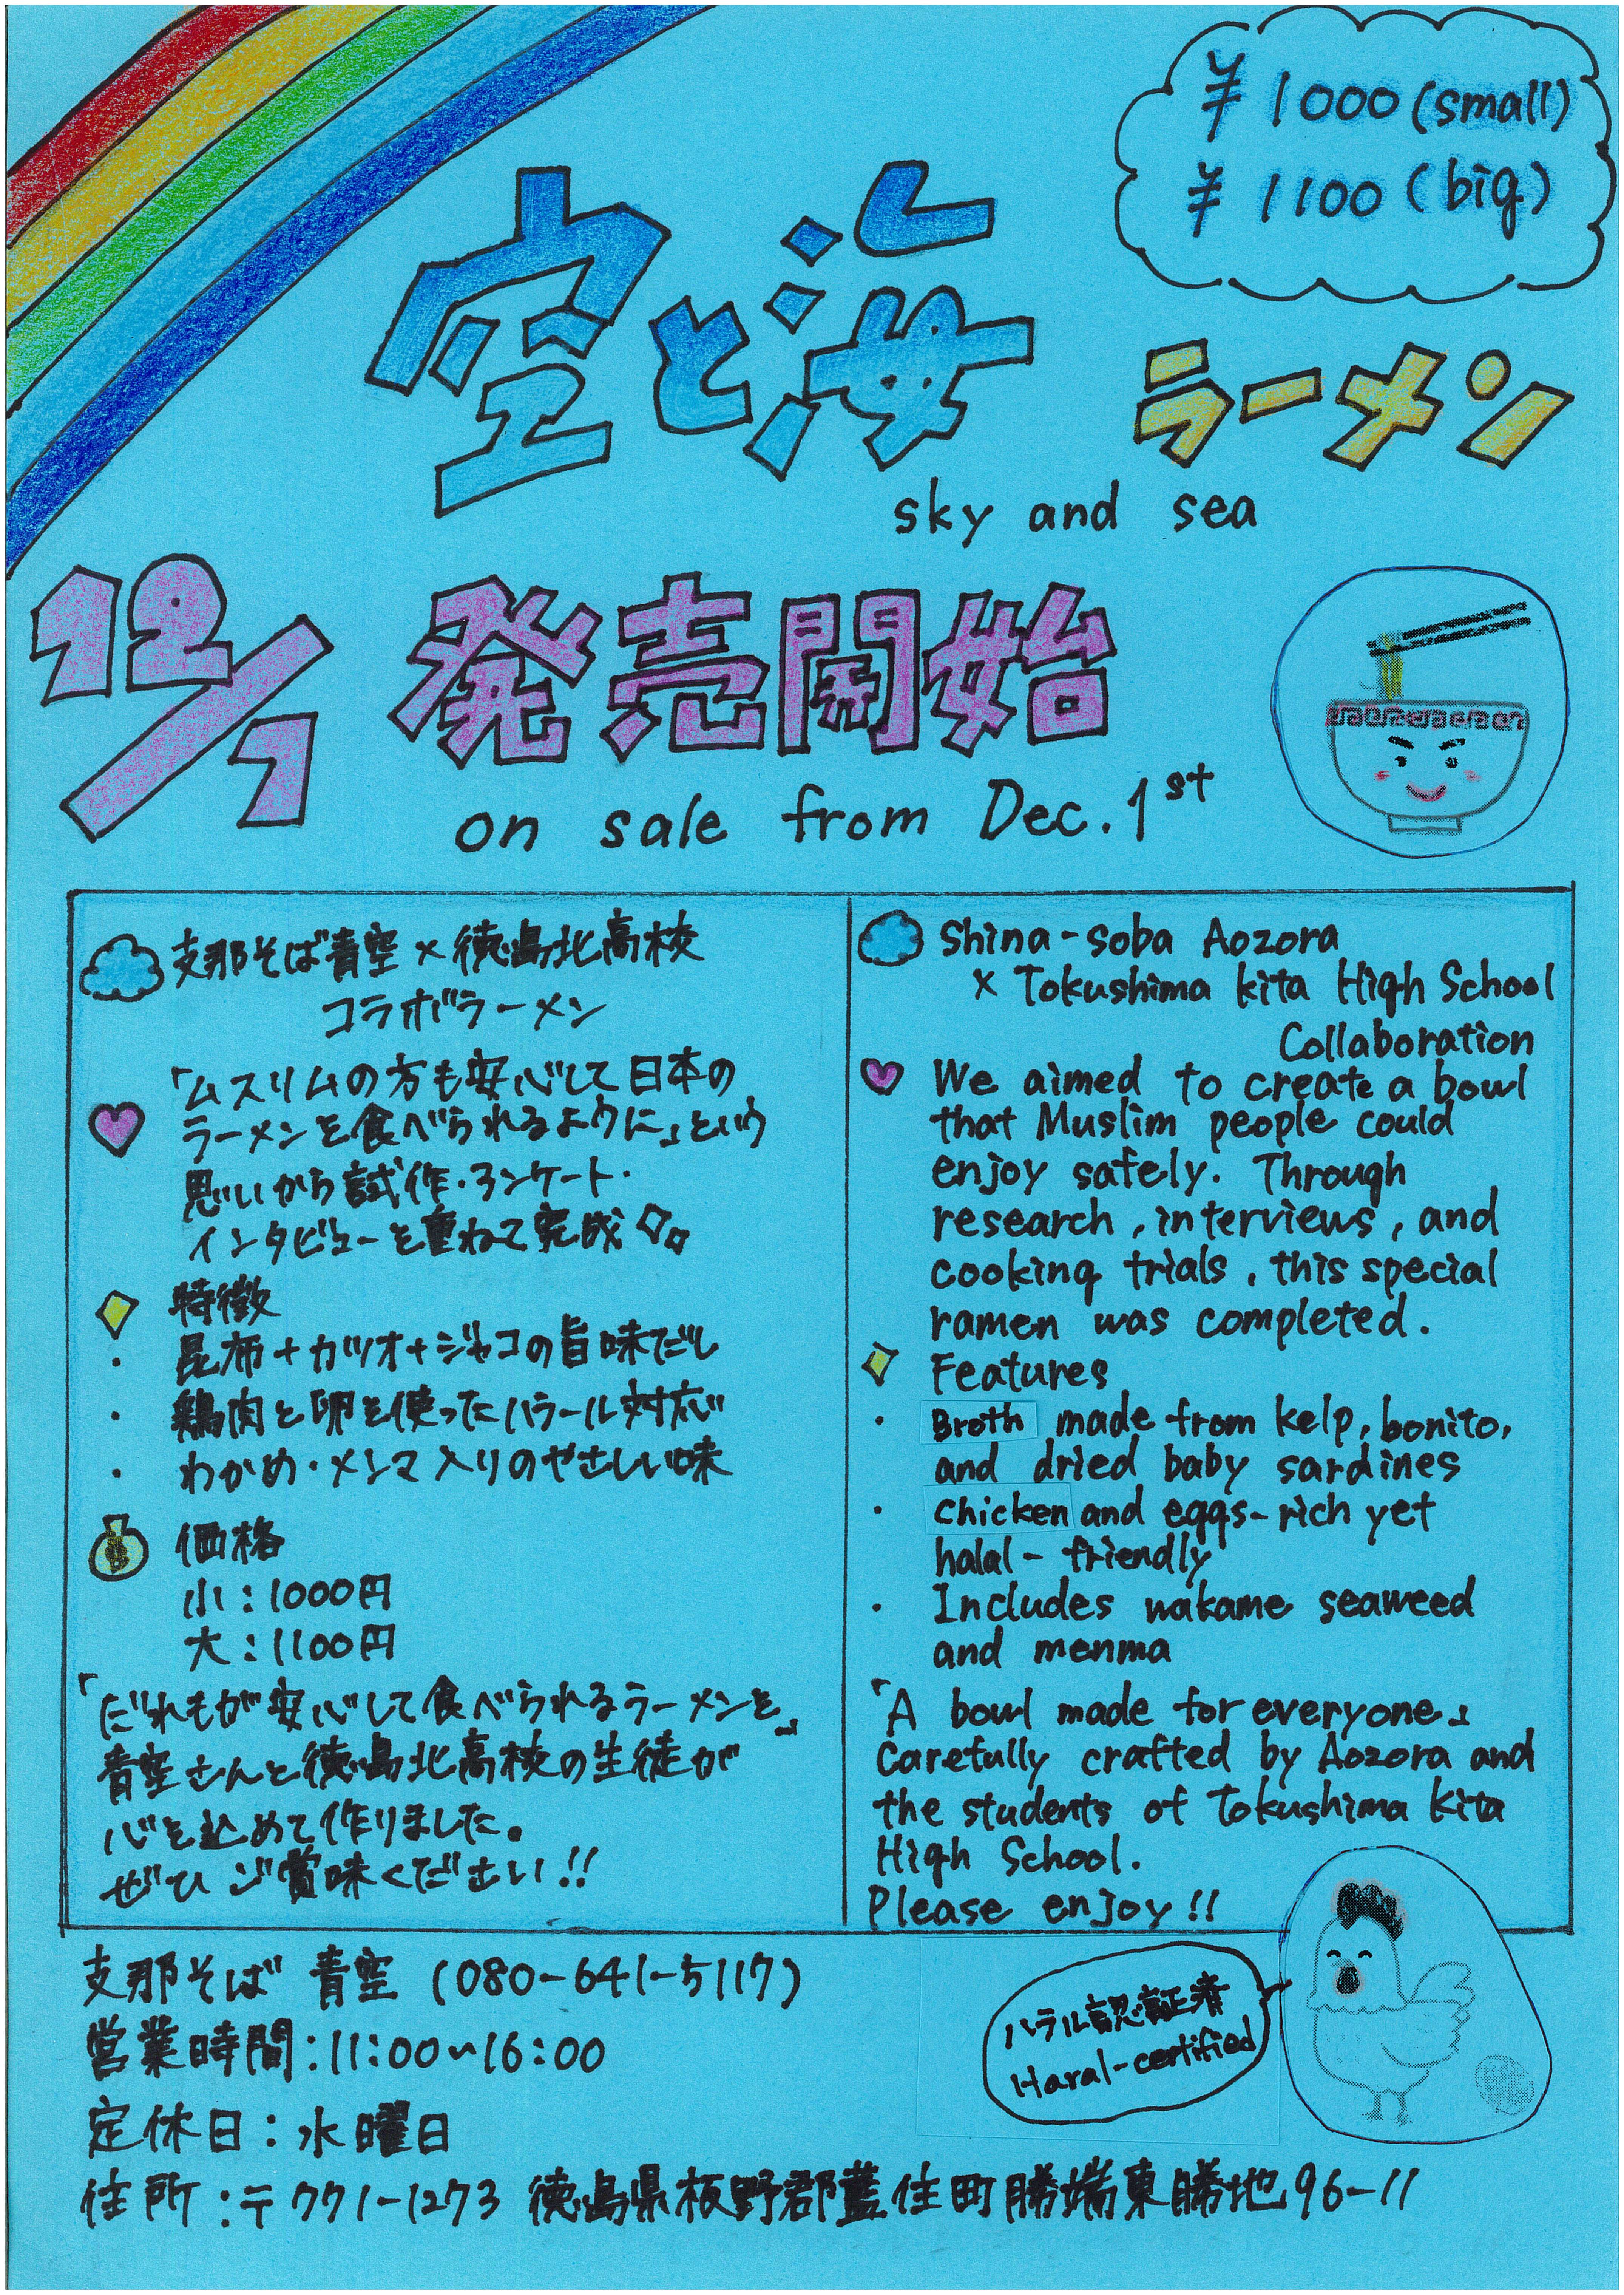 ¥1000(small)
¥1100(big)
空と海 ラーメン
sky and sea
12/1 発売開始
on sale from Dec.1st
支那そば青空×徳島北高校
コラボラーメン
「ムスリムの方も安心して日本の
ラーメンを食べられるように」という
思いから試作・アンケート・
インタビューを重ねて完成
特徴
・昆布+カツオ+ジャコの旨味だし
・鶏肉と卵を使ったハラール対応
・わかめ・メンマ入りのやさしい味
価格
小:1000円
大:1100円
「だれもが安心して食べられるラーメンを」
青空さんと徳島北高校の生徒が
心を込めて作りました。
ぜひご賞味ください!!
Shina-soba Aozora
× Tokushima kita High School
Collaboration
We aimed to create a bowl
that Muslim people could
enjoy safely. Through
research, interviews, and
cooking trials, this special
ramen was completed.
Features
・Broth made from kelp, bonito,
and dried baby sardines
・Chicken and eggs-rich yet
halal-friendly
・Includes wakame seaweed
and menma
「A bowl made for everyone」
Carefully crafted by Aozora and
the students of Tokushima kita
High School.
Please enjoy!!
支那そば 青空 (080-641-5117)
営業時間:11:00~16:00
定休日:水曜日
住所:〒771-1273 徳島県板野郡藍住町勝瑞東勝地96-11
ハラル認証済
Haral-certified